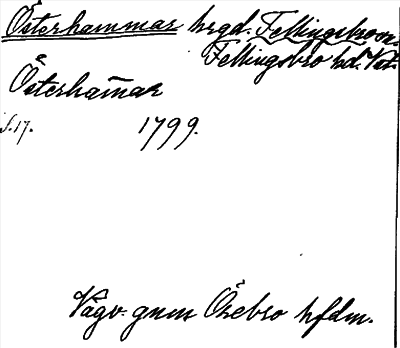 Österhammar hrgd. Fellingsbro sn.
Fellingsbro hd. Vstm.
Österham̄ar
s. 17. 1799.
Vägv. gnm Örebro hfdm.